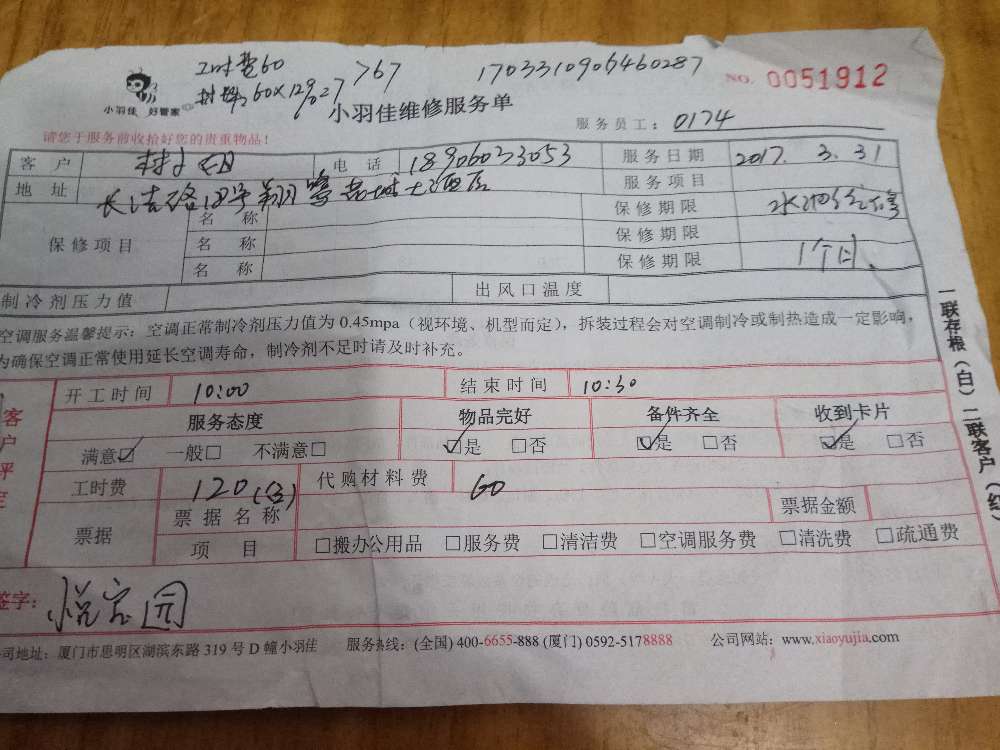 工时费60 >67 1703310906460287 NO. 0051912
材料60×12%27
小羽佳 好管家 小羽佳维修服务单
服务员工: 0174
请您于服务前收拾好您的贵重物品!
客户 林小姐 电话 18906023053 服务日期 2017. 3. 31
地址 长浩路18号翔鹭 大酒店 服务项目
保修项目 名称 保修期限
名称 保修期限
名称 保修期限 1个月
制冷剂压力值 出风口温度
空调服务温馨提示:空调正常制冷剂压力值为 0.45mpa(视环境、机型而定),拆装过程会对空调制冷或制热造成一定影响,
为确保空调正常使用延长空调寿命,制冷剂不足时请及时补充。
开工时间 10:00 结束时间 10:30
服务态度 物品完好 备件齐全 收到卡片
满意☑ 一般□ 不满意□ ☑是 □否 ☑是 □否 ☑是 □否
工时费 120 代购材料费 60
票据 票据名称 票据金额
项目 □搬办公用品 □服务费 □清洁费 □空调服务费 □清洗费 □疏通费
签字:
公司地址:厦门市思明区湖滨东路 319 号 D 幢小羽佳 服务热线:(全国) 400-6655-888 (厦门) 0592-5178888 公司网站:www.xiaoyujia.com
一联存根(白)二联客户(红)
客户评定